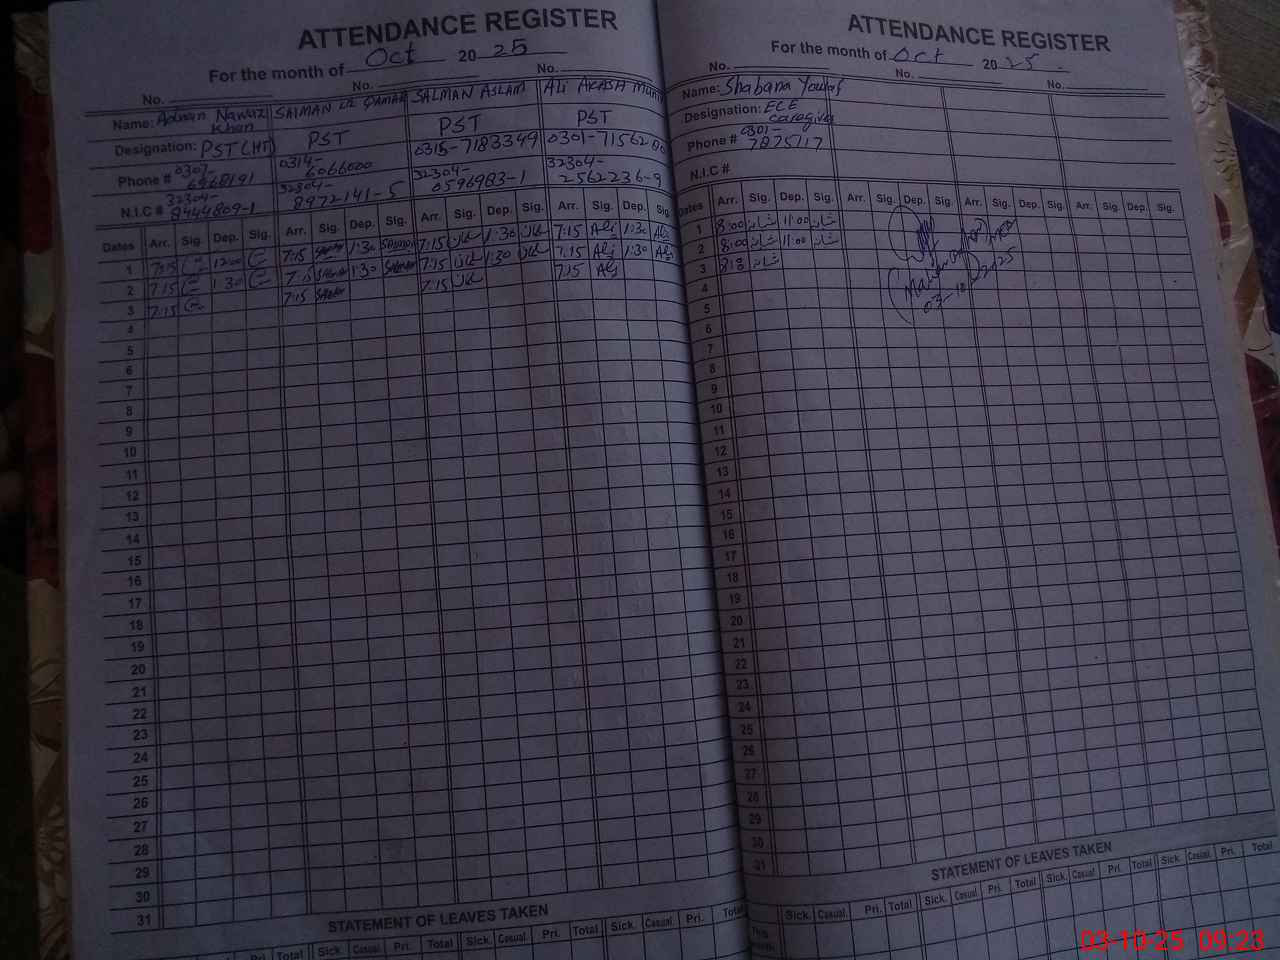 ATTENDANCE REGISTER
For the month of Oct 2025
No. No. No.
Name: Adnan Nawaz Khan SALMAN UL QAMAR SALMAN ASLAM ALI AKASH
Designation: PST (HT) PST PST PST
Phone # 0314-6066000 0315-7183349 0301-71562
N.I.C # 32304-8444809-1 32304-8972141-5 32304-0596983-1 32304-2562236-9
Dates Arr. Sig. Dep. Sig. Arr. Sig. Dep. Sig. Arr. Sig. Dep. Sig. Arr. Sig. Dep. Sig.
1 7:15 12:00 7:15 1:30 7:15 1:30 7:15 Ali 1:30 Ali
2 7:15 1:30 7:15 1:30 7:15 1:30 7:15 Ali 1:30 Ali
3 7:15 7:15 7:15 7:15 Ali
4
5
6
7
8
9
10
11
12
13
14
15
16
17
18
19
20
21
22
23
24
25
26
27
28
29
30
31
STATEMENT OF LEAVES TAKEN
Sick. Casual. Pri. Total Sick. Casual. Pri. Total Sick. Casual. Pri. Total
ATTENDANCE REGISTER
For the month of Oct 2025
No. No. No.
Name: Shabana Yousaf
Designation: ECE Caregiver
Phone # 0301-7875717
N.I.C #
Dates Arr. Sig. Dep. Sig. Arr. Sig. Dep. Sig. Arr. Sig. Dep. Sig. Arr. Sig. Dep. Sig.
1 8:00 شبانہ 11:00 شبانہ
2 8:00 شبانہ 11:00 شبانہ
3 شبانہ
03-10-2025
4
5
6
7
8
9
10
11
12
13
14
15
16
17
18
19
20
21
22
23
24
25
26
27
28
29
30
31
STATEMENT OF LEAVES TAKEN
Sick. Casual. Pri. Total Sick. Casual. Pri. Total Sick. Casual. Pri. Total Sick. Casual. Pri. Total
This month
03-10-25 09:23